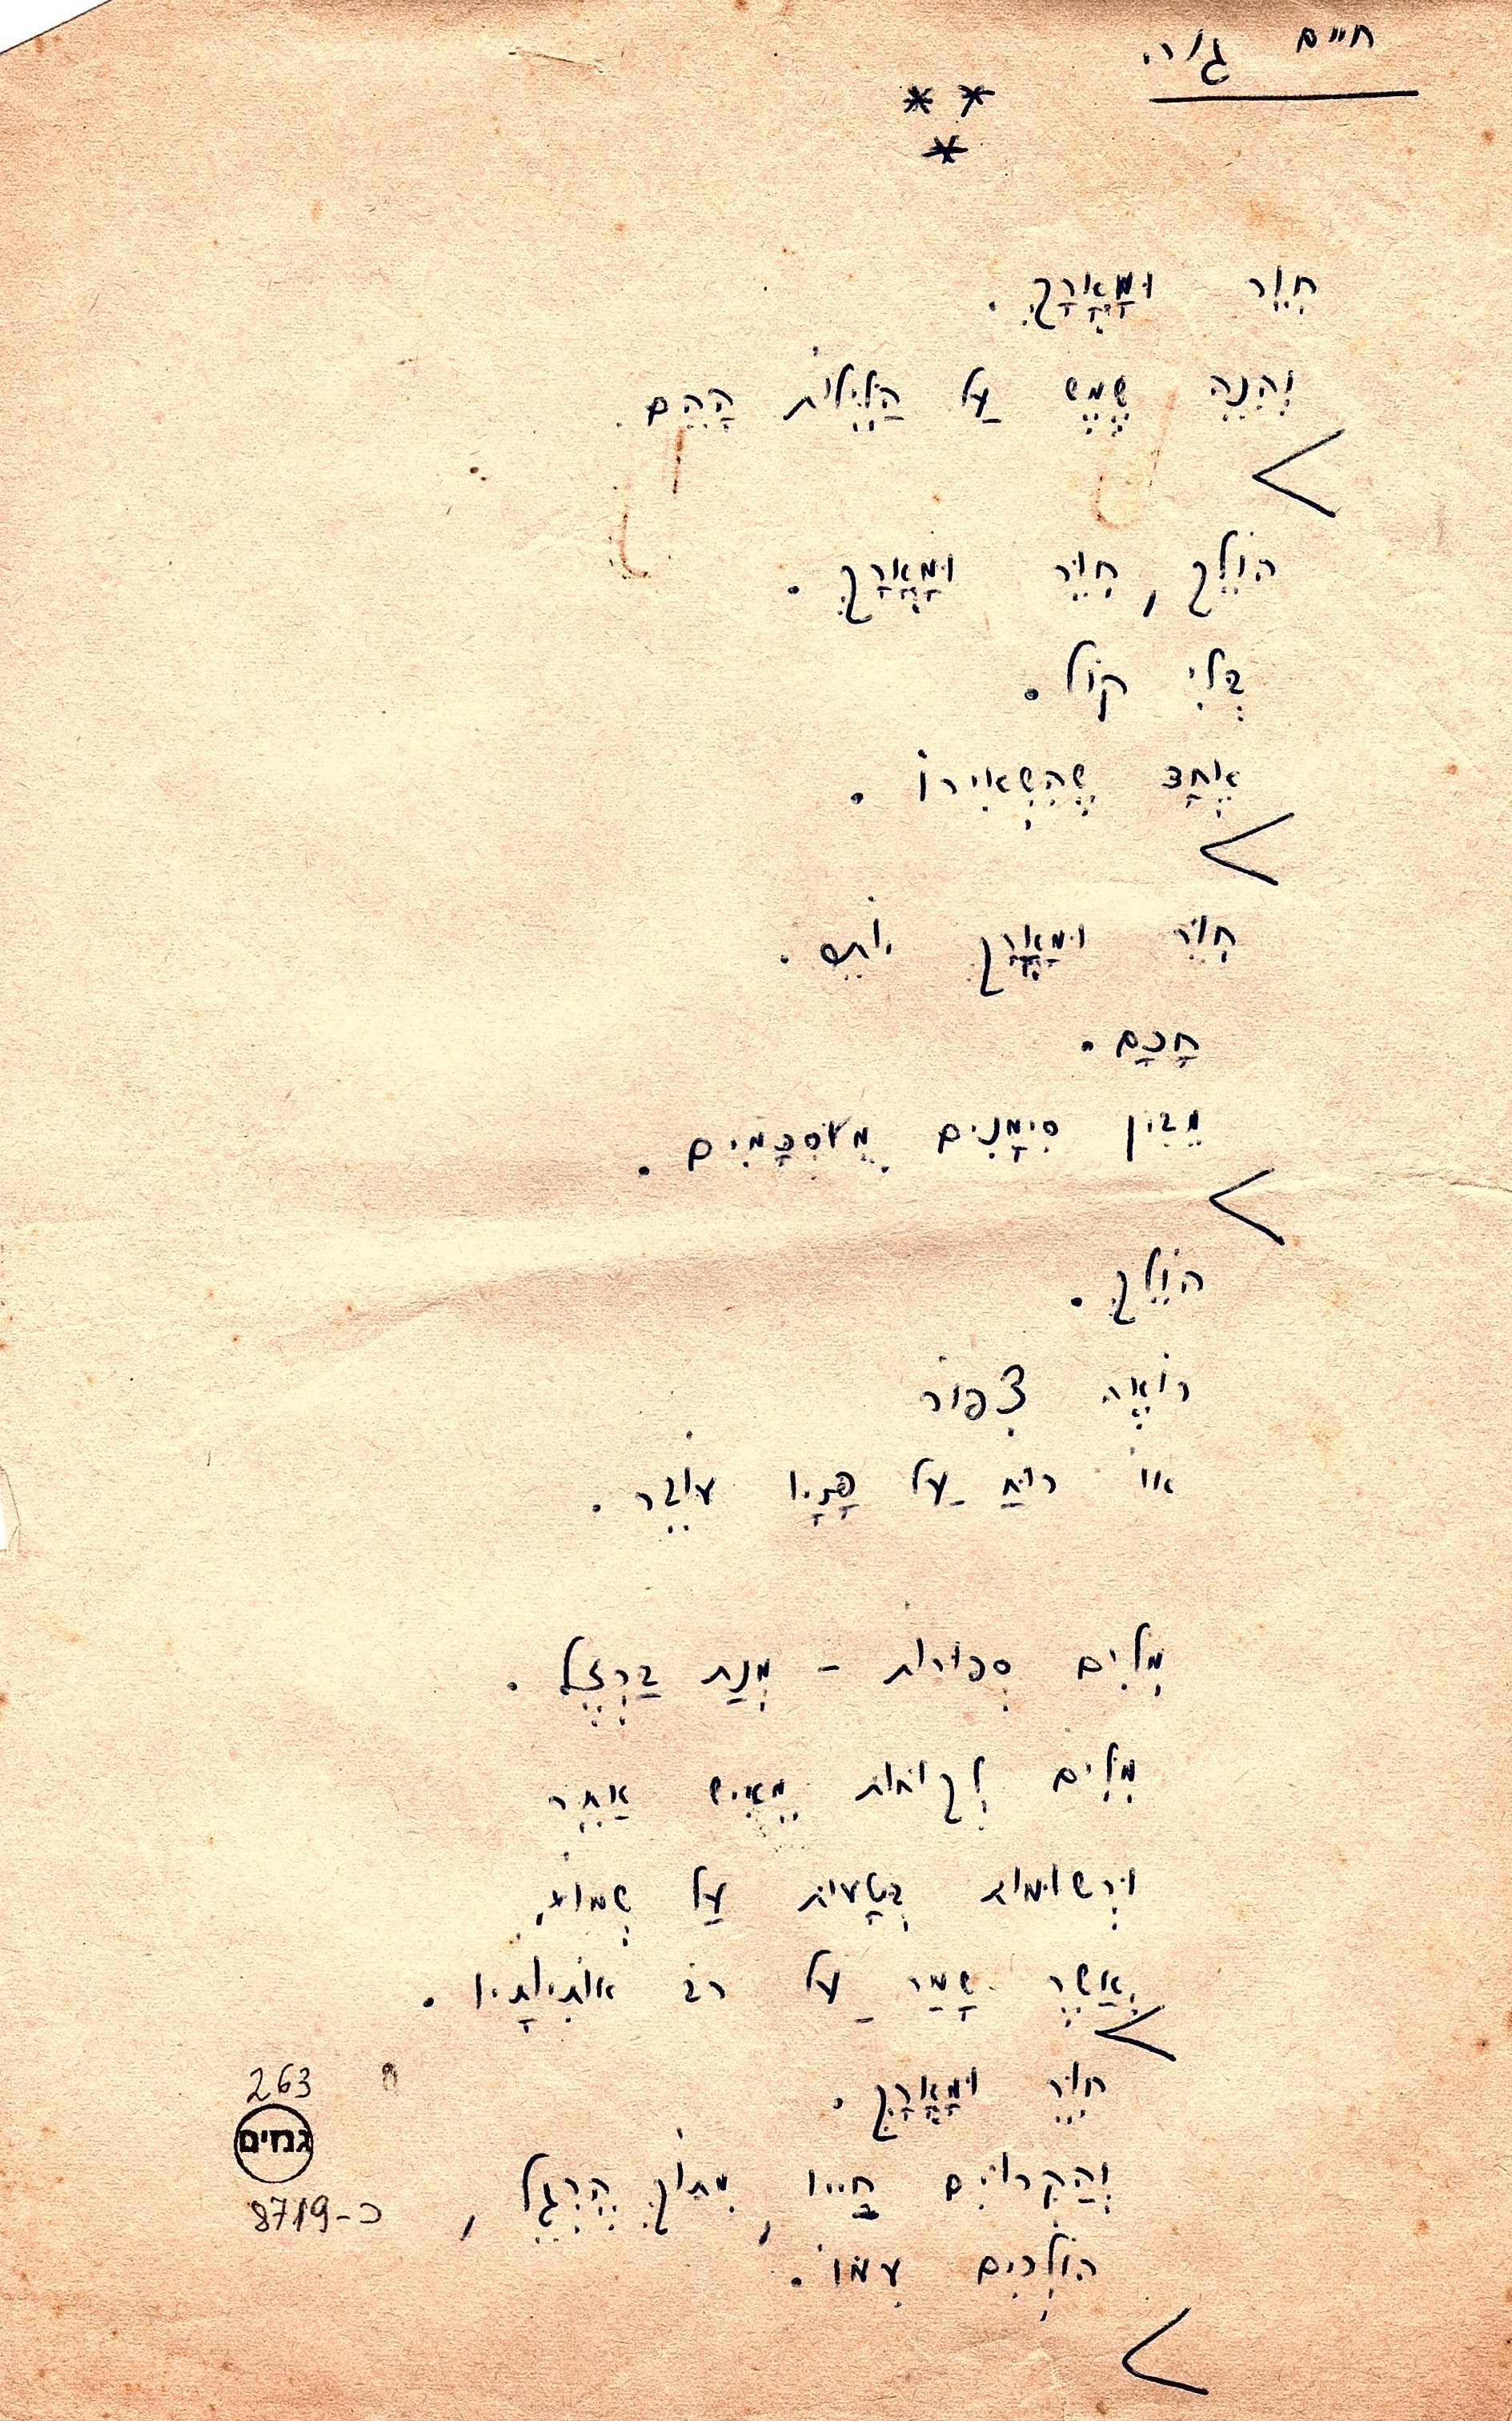 חיים גורי
* *
*
חִוֵּר וּמָאֳרָךְ.
וְהִנֵּה שֶׁמֶשׁ עַל הַלֵּילוֹת הָהֵם.
הוֹלֵךְ, חִוֵּר וּמָאֳרָךְ.
בְּלִי קוֹל.
אֶחָד שֶׁהִשְׁאִירוֹ.
חִוֵּר וּמָאֳרָךְ יוֹתֵר.
חָכָם.
מֵבִין סִימָנִים מֻסְכָּמִים.
הוֹלֵךְ.
רוֹאֶה צִפּוֹר
אוֹ רוּחַ עַל פָּנָיו עוֹבֵר.
מִלִּים סְפוּרוֹת – מְנַת בַּרְזֶל.
מִלִּים לְקוּחוֹת מֵאִישׁ אַחֵר
וּרְשׁוּמוֹת בְּטָעוּת עַל שְׁמוֹ,
אֲשֶׁר שָׁמַר עַל רֹב אוֹתִיּוֹתָיו.
חִוֵּר וּמָאֳרָךְ.
וְהַקְּרוּיִים חַיָּיו, מִתּוֹךְ הֶרְגֵּל,
הוֹלְכִים עִמּוֹ.
263
גנזים
כ-8719